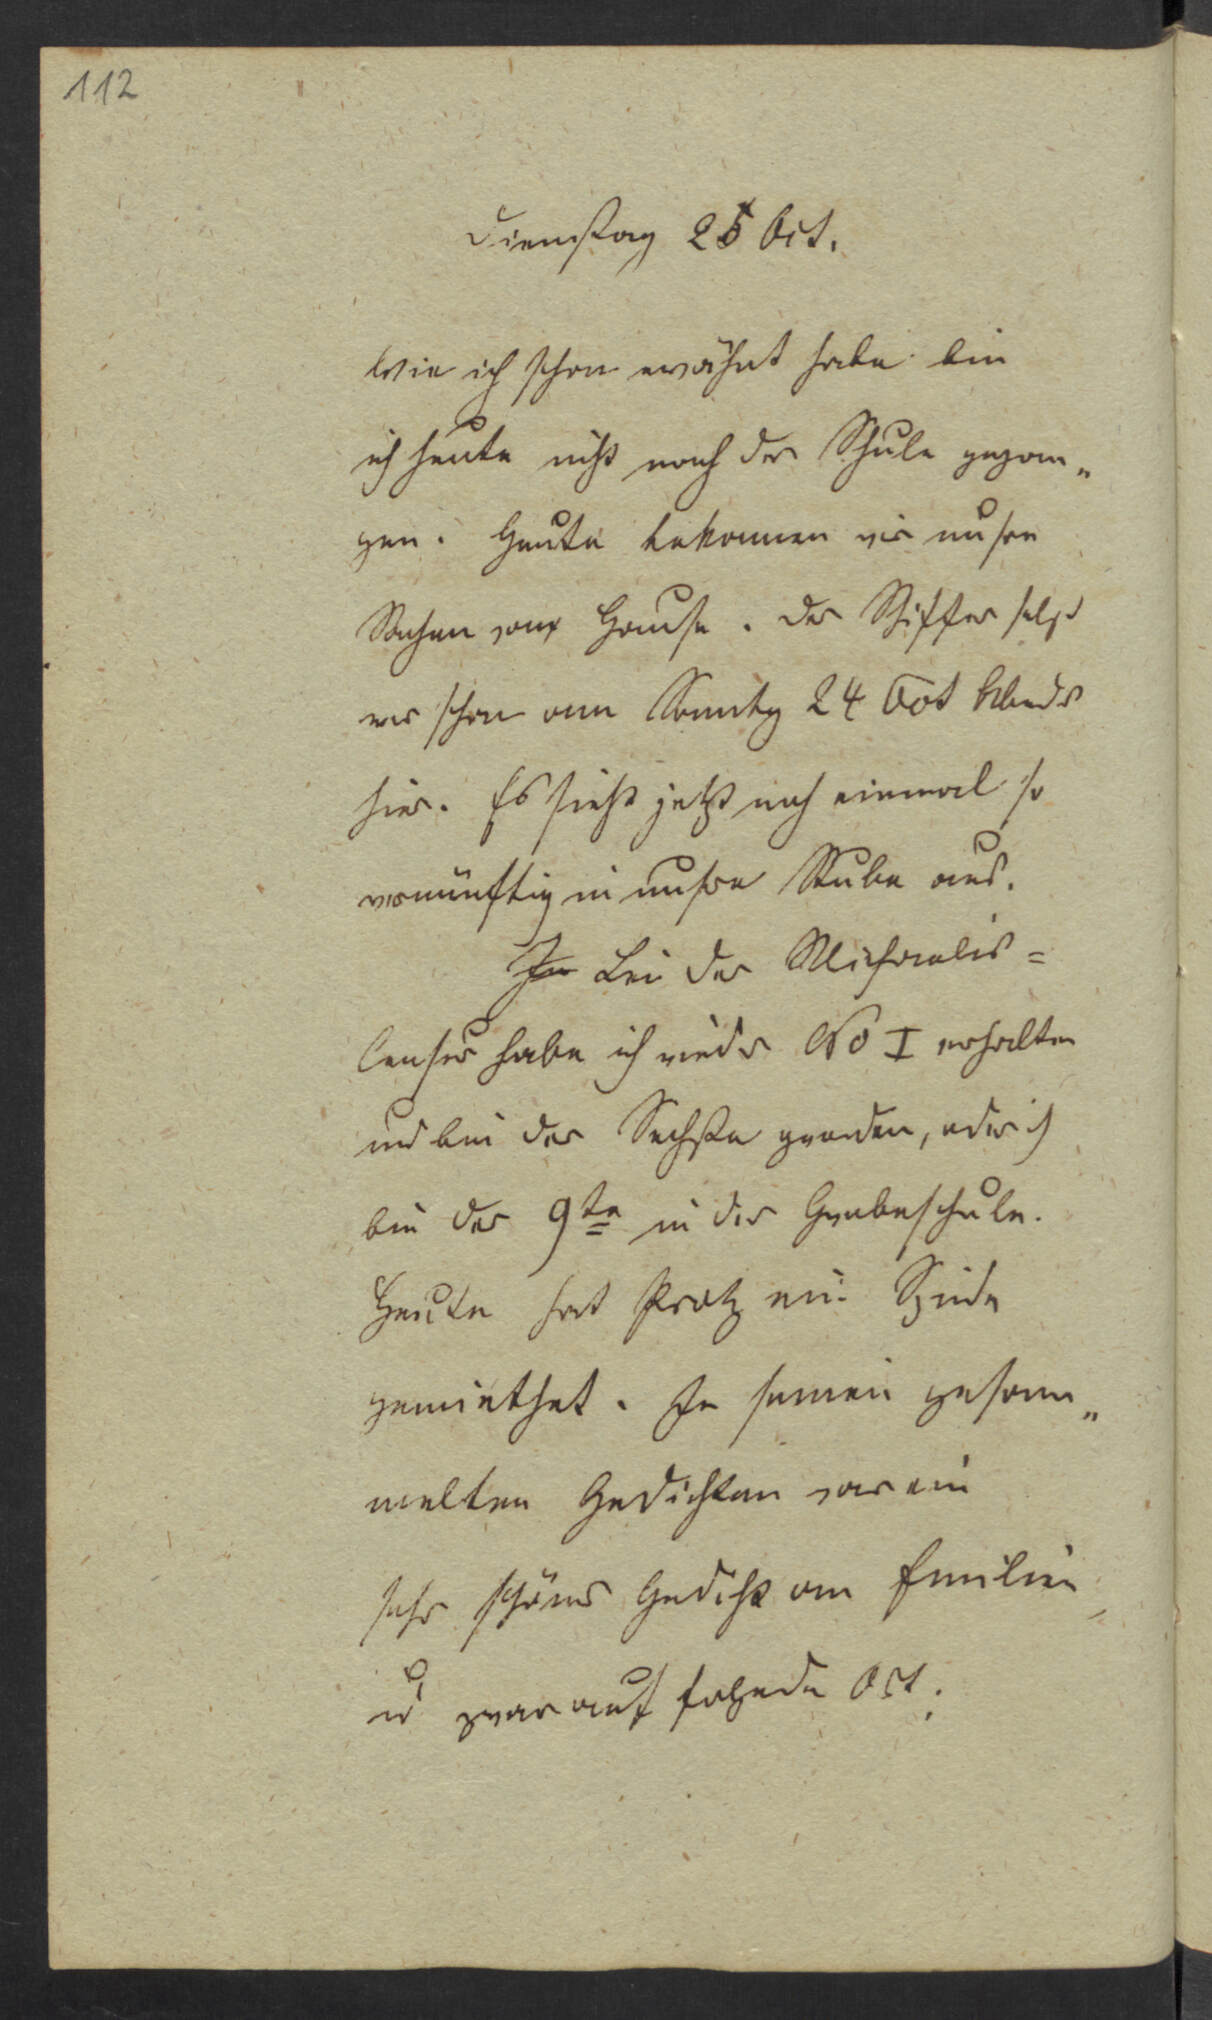 112
Dienstag 25 Oct.
Wie ich schon erwähnt habe bin
ich heute nicht nach der Schule gegan„
gen. Heute bekamen wir unsre
Sachen von Hause. Der Schiffer selbst
war schon am Sonntg 24 Oct Abends
hier. Es sieht jetzt noch einmal so
vernünftig in unsre Stube aus.
In Bei der Michaelis=
censur habe ich wieder No I erhalten
und bin der Sechste gworden, oder ich
bin der 9te in der Schule.
Heute hat Pratz ein Spinde
gemiethet. In seinen gesam„
melten Gedichten war ein
sehr schönes Gedicht an Emilien
u zwar auf folgende Art: